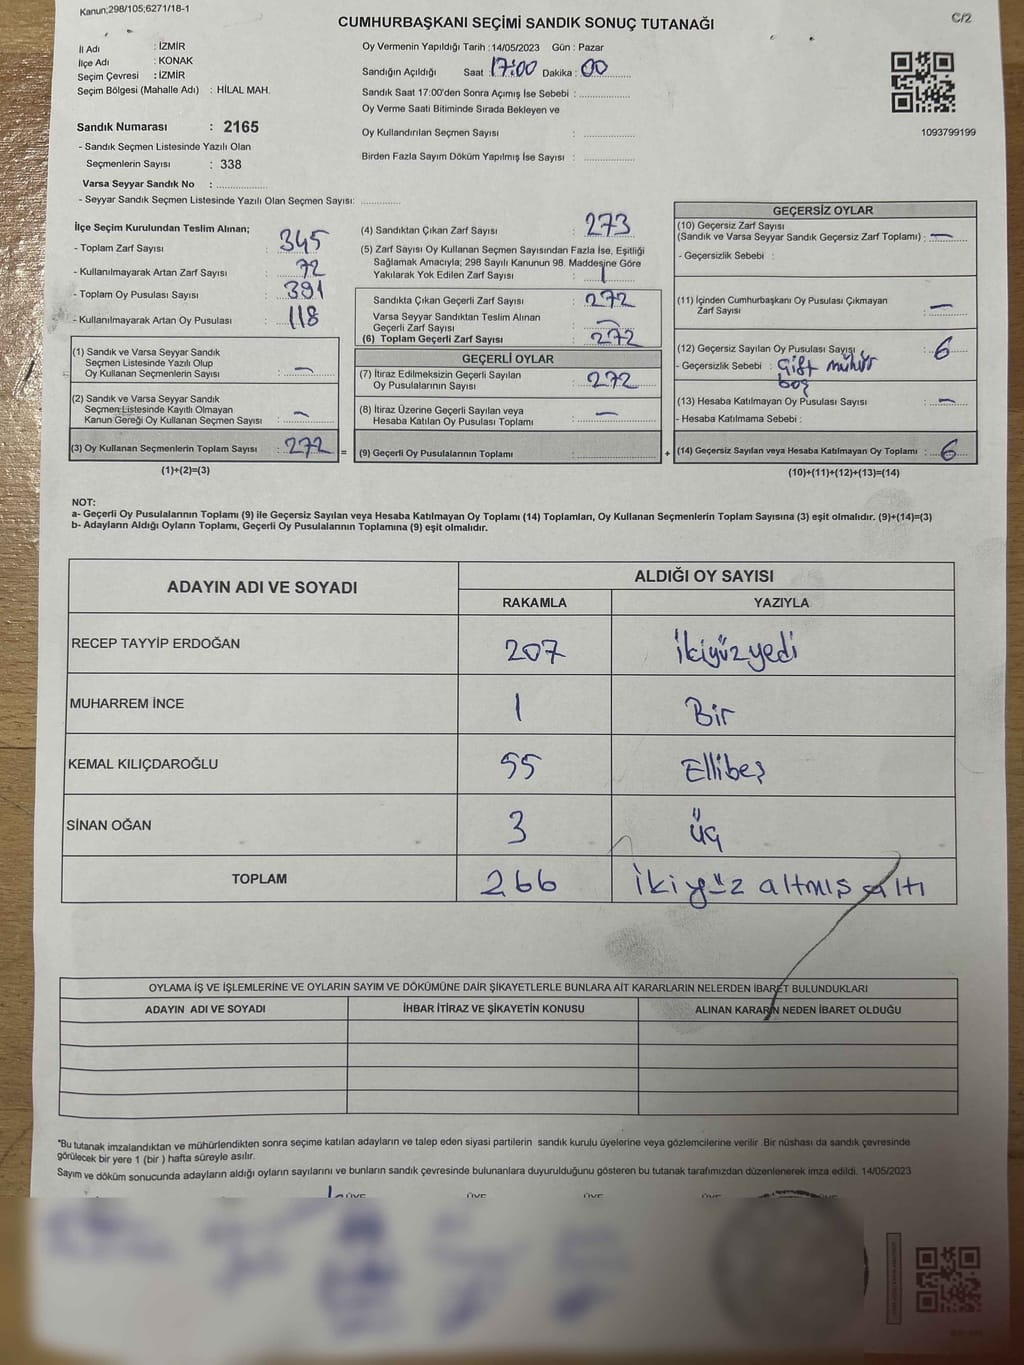 Kanun;298/105;6271/18-1
C/2
CUMHURBAŞKANI SEÇİMİ SANDIK SONUÇ TUTANAĞI
İl Adı : İZMİR
İlçe Adı : KONAK
Seçim Çevresi : İZMİR
Seçim Bölgesi (Mahalle Adı) : HİLAL MAH.
Sandık Numarası : 2165
- Sandık Seçmen Listesinde Yazılı Olan
Seçmenlerin Sayısı : 338
Varsa Seyyar Sandık No : ................
- Seyyar Sandık Seçmen Listesinde Yazılı Olan Seçmen Sayısı: ............
Oy Vermenin Yapıldığı Tarih :14/05/2023 Gün : Pazar
Sandığın Açıldığı Saat 17:00 Dakika : 00
Sandık Saat 17:00'den Sonra Açımış İse Sebebi : ................
Oy Verme Saati Bitiminde Sırada Bekleyen ve
Oy Kullandırılan Seçmen Sayısı : ................
Birden Fazla Sayım Döküm Yapılmış İse Sayısı : ................
1093799199
İlçe Seçim Kurulundan Teslim Alınan;
- Toplam Zarf Sayısı : 345
- Kullanılmayarak Artan Zarf Sayısı : 72
- Toplam Oy Pusulası Sayısı : 391
- Kullanılmayarak Artan Oy Pusulası : 118
(1) Sandık ve Varsa Seyyar Sandık
Seçmen Listesinde Yazılı Olup
Oy Kullanan Seçmenlerin Sayısı : —
(2) Sandık ve Varsa Seyyar Sandık
Seçmen Listesinde Kayıtlı Olmayan
Kanun Gereği Oy Kullanan Seçmen Sayısı : —
(3) Oy Kullanan Seçmenlerin Toplam Sayısı : 272 =
(1)+(2)=(3)
(4) Sandıktan Çıkan Zarf Sayısı : 273
(5) Zarf Sayısı Oy Kullanan Seçmen Sayısından Fazla İse, Eşitliği
Sağlamak Amacıyla; 298 Sayılı Kanunun 98. Maddesine Göre
Yakılarak Yok Edilen Zarf Sayısı : 1
Sandıkta Çıkan Geçerli Zarf Sayısı : 272
Varsa Seyyar Sandıktan Teslim Alınan
Geçerli Zarf Sayısı : —
(6) Toplam Geçerli Zarf Sayısı : 272
GEÇERLİ OYLAR
(7) İtiraz Edilmeksizin Geçerli Sayılan
Oy Pusulalarının Sayısı : 272
(8) İtiraz Üzerine Geçerli Sayılan veya
Hesaba Katılan Oy Pusulası Toplamı : —
(9) Geçerli Oy Pusulalarının Toplamı : ................ +
GEÇERSİZ OYLAR
(10) Geçersiz Zarf Sayısı
(Sandık ve Varsa Seyyar Sandık Geçersiz Zarf Toplamı) : —
- Geçersizlik Sebebi :
(11) İçinden Cumhurbaşkanı Oy Pusulası Çıkmayan
Zarf Sayısı : —
(12) Geçersiz Sayılan Oy Pusulası Sayısı : 6
- Geçersizlik Sebebi : Çift mühür
boş
(13) Hesaba Katılmayan Oy Pusulası Sayısı : —
- Hesaba Katılmama Sebebi :
(14) Geçersiz Sayılan veya Hesaba Katılmayan Oy Toplamı : 6
(10)+(11)+(12)+(13)=(14)
NOT:
a- Geçerli Oy Pusulalarının Toplamı (9) ile Geçersiz Sayılan veya Hesaba Katılmayan Oy Toplamı (14) Toplamları, Oy Kullanan Seçmenlerin Toplam Sayısına (3) eşit olmalıdır. (9)+(14)=(3)
b- Adayların Aldığı Oyların Toplamı, Geçerli Oy Pusulalarının Toplamına (9) eşit olmalıdır.
ADAYIN ADI VE SOYADI
ALDIĞI OY SAYISI
RAKAMLA YAZIYLA
RECEP TAYYİP ERDOĞAN 207 İkiyüzyedi
MUHARREM İNCE 1 Bir
KEMAL KILIÇDAROĞLU 55 Ellibeş
SİNAN OĞAN 3 üç
TOPLAM 266 İkiyüz altmış altı
OYLAMA İŞ VE İŞLEMLERİNE VE OYLARIN SAYIM VE DÖKÜMÜNE DAİR ŞİKAYETLERLE BUNLARA AİT KARARLARIN NELERDEN İBARET BULUNDUKLARI
ADAYIN ADI VE SOYADI İHBAR İTİRAZ VE ŞİKAYETİN KONUSU ALINAN KARARIN NEDEN İBARET OLDUĞU
"Bu tutanak imzalandıktan ve mühürlendikten sonra seçime katılan adayların ve talep eden siyasi partilerin sandık kurulu üyelerine veya gözlemcilerine verilir .Bir nüshası da sandık çevresinde
görülecek bir yere 1 (bir ) hafta süreyle asılır.
Sayım ve döküm sonucunda adayların aldığı oyların sayılarını ve bunların sandık çevresinde bulunanlara duyurulduğunu gösteren bu tutanak tarafımızdan düzenlenerek imza edildi. 14/05/2023
ÜYE ÜYE ÜYE ÜYE ÜYE